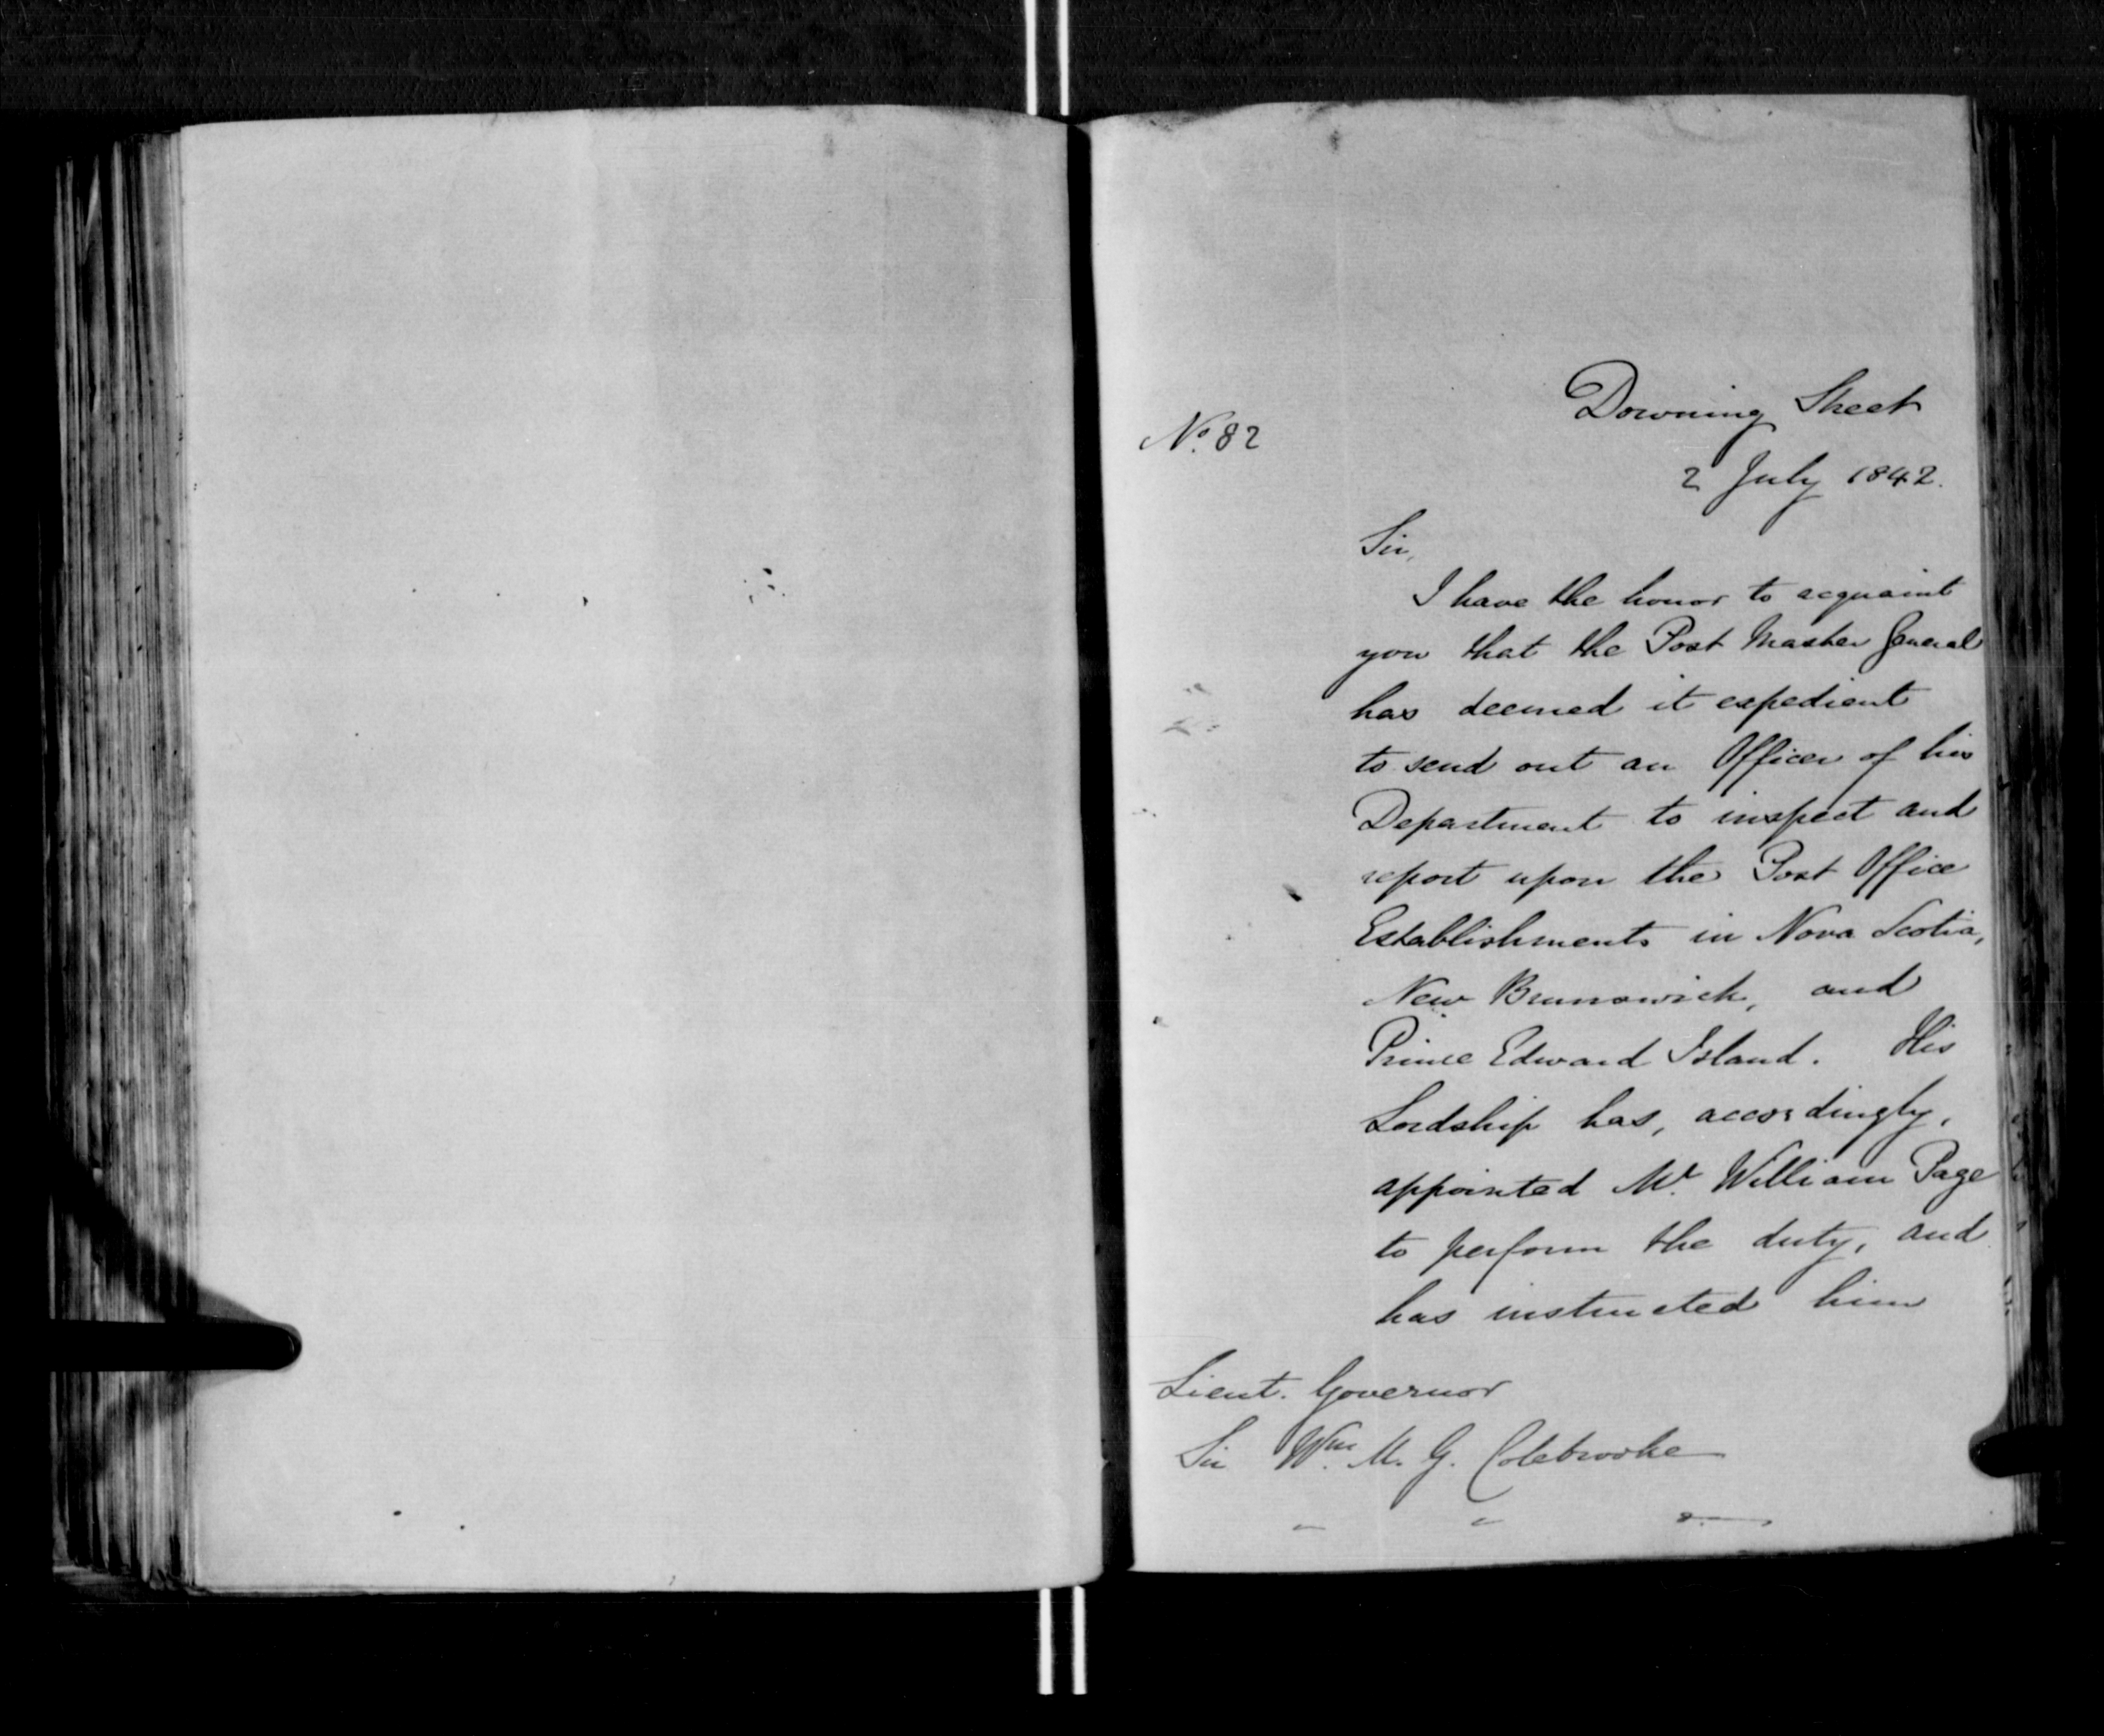 Downing Street
No. 82
2 July 1842.
Sir,
I have the honor to acquaint
you that the Post Master General
has deemed it expedient
to send out an Officer of his
Department to inspect and
report upon the Post Office
Establishments in Nova Scotia,
New Brunswick, and
Prince Edward Island. His
Lordship has, accordingly,
appointed Mr. William Page
to perform the duty, and
has instructed him
Lieut. Governor
Sir Wm. M. G. Colebrooke